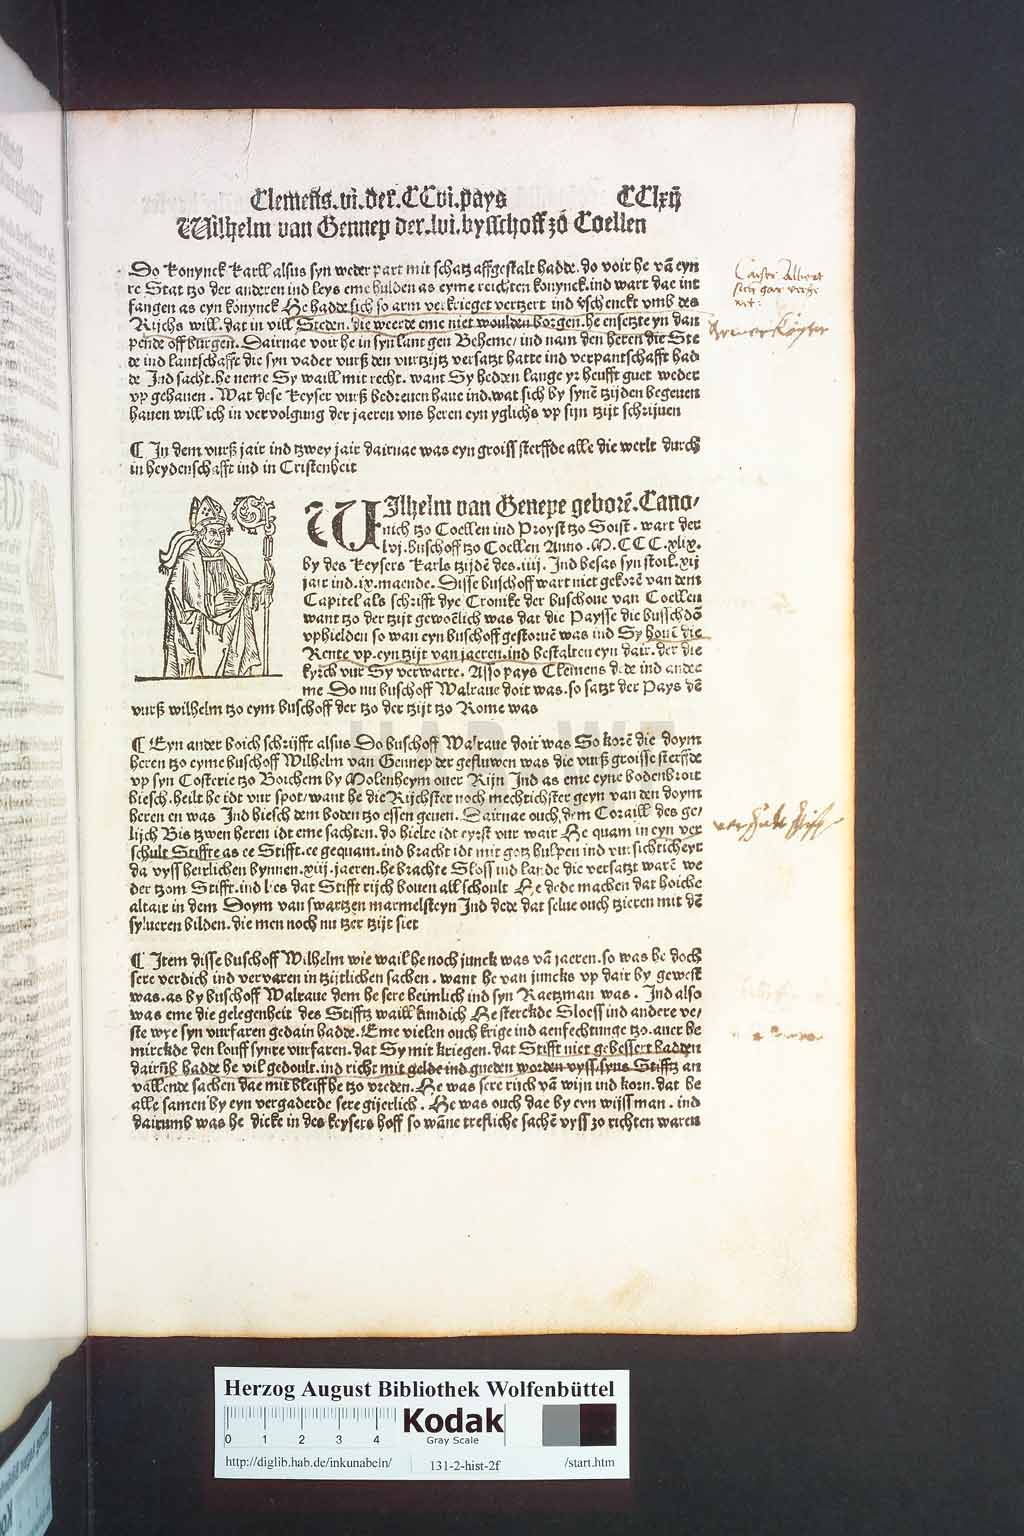 Clemens.vi.der.CCvi.pays CClxij
Wilhelm van Gennep der.lvi.bysschoff zo Coellen
Do konynck karll alsus syn weder part mit schatz affgestalt hadde.do voir he vā eyn
re Stat tzo der anderen ind leys eme hulden as eyme reichten konynck.ind wart dae int
fangen as eyn konynck He hadde sich so arm verkrieget vertzert ind vschenckt vmb des
Rijchs will.dat in vill Steden.die weerde eme niet woulden borgen.he ensetzte yn dan
pende off burgen. Dairnae voir he in syn lant gen Beheme/ ind nam den heren die Ste
de ind lantschafft die syn vader vurß den vurtzijtz versatzt hatte ind verpantschafft had
de Ind sacht.he neme Sy waill mit recht. want Sy hedden lange yr heufft guet weder
vp gehauen. Wat dese keyser vurß bedreuen haue ind.wat sich by synē tzijden begeuen
hauen will ich in vervolgung der jaeren vns heren eyn yglichs vp sijn tzijt schrijuen
¶ In dem vurß jair ind tzwey jair dairnae was eyn groiss sterffde alle die werlt durch
in heydenschafft ind in Cristenheit
WIlhelm van Genepe geborē.Cano/
nich tzo Coellen ind Proyst tzo Soist. wart der
lvj.buschoff tzo Coellen Anno .M.CCC.xlix.
by des keysers karls tzijdē des.iiij. Ind besas syn stoil.xij
jair ind.ix.maende. Disse buschoff wart niet gekorē van dem
Capitel als schrifft dye Cronike der buschoue van Coellen
want tzo der tzijt gewoēlich was dat die Paysse die busschdō
vphielden so wan eyn buschoff gestoruē was ind Sy houē die
Rente vp.eyn tzijt van jaeren.ind bestalten eyn dair.der die
kyrch vur Sy verwarte. Also pays Clemens dede ind andee
me Do nu buschoff Walraue doit was.so satzt der Pays dē
vurß wilhelm tzo eym buschoff der tzo der tzijt tzo Rome was
¶ Eyn ander boich schrijfft alsus Do buschoff Walraue doit was So korē die doym
heren tzo eyme buschoff Wilhelm van Gennep der gefluwen was die vurß groisse sterffde
vp syn Costerie tzo Boichem by Molenheym ouer Rijn Ind as eme eyne bodenbroit
hiesch.heilt he idt vur spot/want he die Rijchster noch mechtichster geyn van den doym
heren en was Ind hiesch dem boden tzo essen geuen. Dairnae ouch dem Coraill des ge/
lijch Bis tzwen heren idt eme sachten.do hielte idt eyrst vur wair He quam in eyn ver
schult Stiffte as ee Stifft.ee gequam.ind bracht idt mit gotz hulpen ind vursichticheyt
da vyss heirlichen bynnen.xiij.jaeren.he brachte Sloss ind lande die versatzt warē we
der tzom Stifft.ind lies dat Stifft rijch bouen all schoult He dede machen dat hoiche
altair in dem Doym van swartzen marmelsteyn Ind dede dat selue ouch tzieren mit dē
sylueren bilden.die men noch nu tzer tzijt siet
¶ Item disse buschoff Wilhelm wie wail he noch junck was vā jaeren.so was he doch
sere verdich ind vervaren in tzijtlichen sachen. want he van juncks vp dair by gewest
was.as by buschoff Walraue dem he sere heimlich ind syn Raetzman was. Ind also
was eme die gelegenheit des Stifftz waill kundich He sterckde Sloess ind andere ve/
ste wye syn vurfaren gedain hadde. Eme vielen ouch krige ind aenfechtunge tzo.auer he
mirckde den louff synre vurfaren.dat Sy mit kriegen.dat Stifft niet gebessert hadden
dairūb hadde he vil gedoult.ind richt mit gelde ind gueden worden vyss.syns Stifftz an
vallende sachen dae mit bleiff he tzo vreden. He was sere rijch vā wijn ind korn.dat he
alle samen by eyn vergaderde sere gijerlich. He was ouch dae by eyn wijss man. ind
dairumb was he dicke in des keysers hoff so wāne trefliche sachē vyss zo richten waren
Herzog August Bibliothek Wolfenbüttel
Kodak
Gray Scale
0 1 2 3 4
http://diglib.hab.de/inkunabeln/ 131-2-hist-2f /start.htm